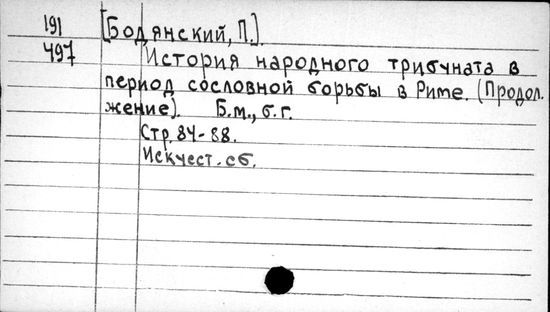 191 [Бодянский, П.]
497 История народного трибуната в
период сословной борьбы в Риме. (Продол-
жение). Б.м., б.г.
Стр. 84-88.
Искусст. сб.